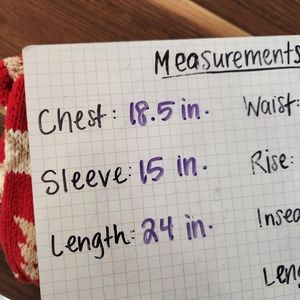 Measurements
Chest: 18.5 in. Waist:
Sleeve: 15 in. Rise:
Length: 24 in.